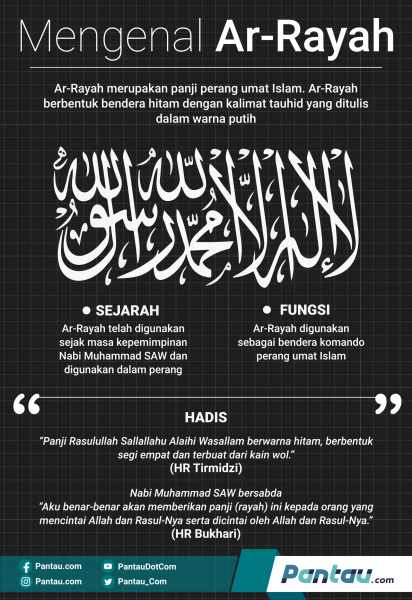 Mengenal Ar-Rayah
Ar-Rayah merupakan panji perang umat Islam. Ar-Rayah
berbentuk bendera hitam dengan kalimat tauhid yang ditulis
dalam warna putih
لا إله إلا الله محمد رسول الله
SEJARAH
Ar-Rayah telah digunakan
sejak masa kepemimpinan
Nabi Muhammad SAW dan
digunakan dalam perang
FUNGSI
Ar-Rayah digunakan
sebagai bendera komando
perang umat Islam
HADIS
“Panji Rasulullah Sallallahu Alaihi Wasallam berwarna hitam, berbentuk
segi empat dan terbuat dari kain wol.”
(HR Tirmidzi)
Nabi Muhammad SAW bersabda
“Aku benar-benar akan memberikan panji (rayah) ini kepada orang yang
mencintai Allah dan Rasul-Nya serta dicintai oleh Allah dan Rasul-Nya.”
(HR Bukhari)
Pantau.com
PantauDotCom
Pantau.com
Pantau_Com
Pantau.com